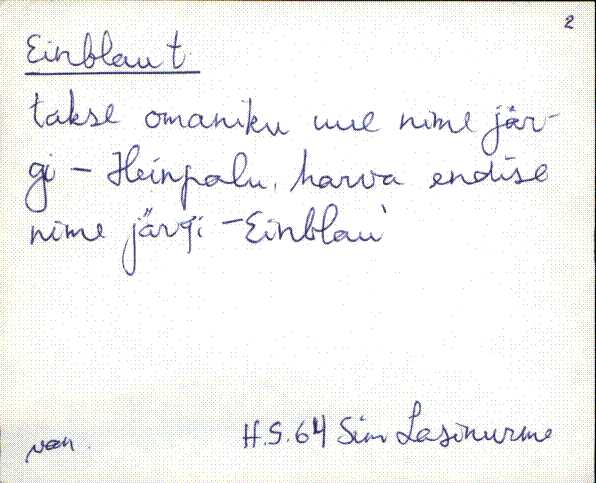 2
Einblau t.
takse omaniku uue nime jär-
gi - Heinpalu, harva endise
nime järgi - Einblau'
H.S. 64 Sim Lasinurme